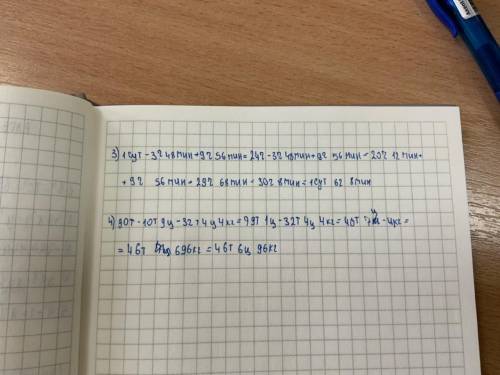 3) 1 сут - 3ч 48мин + 9ч 56 мин = 24ч - 3ч 48мин + 9ч 56 мин = 20ч 12 мин +
+ 9ч 56 мин = 29ч 68 мин = 30ч 8 мин = 1 сут 6ч 8 мин
4) 90т - 10т 9ц - 32т 4ц 4кг = 79т 1ц - 32т 4ц 4кг = 46т 7ц - 4кг =
= 46т 696кг = 46т 6ц 96кг